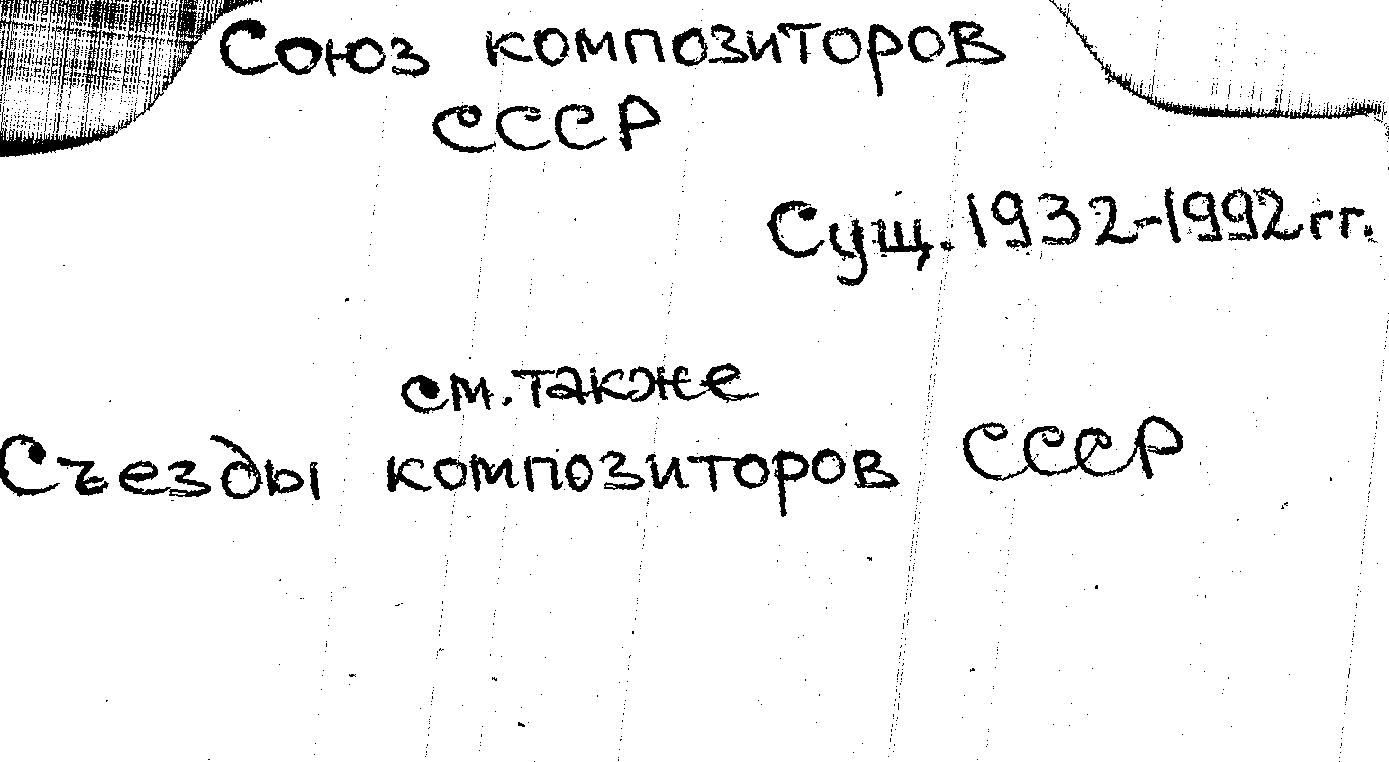 Союз композиторов
СССР
Сущ. 1932-1992 гг.
см. также
Съезды композиторов СССР